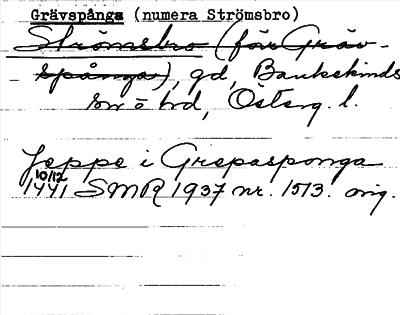 Grävspånga (numera Strömsbro)
Strömsbro (för Gräv-
spånga), gd, Bankekinds
sn o hd, Österg. l.
Jeppe i Grepasponga
10/12
1441 SMR 1937 nr. 1513. orig.